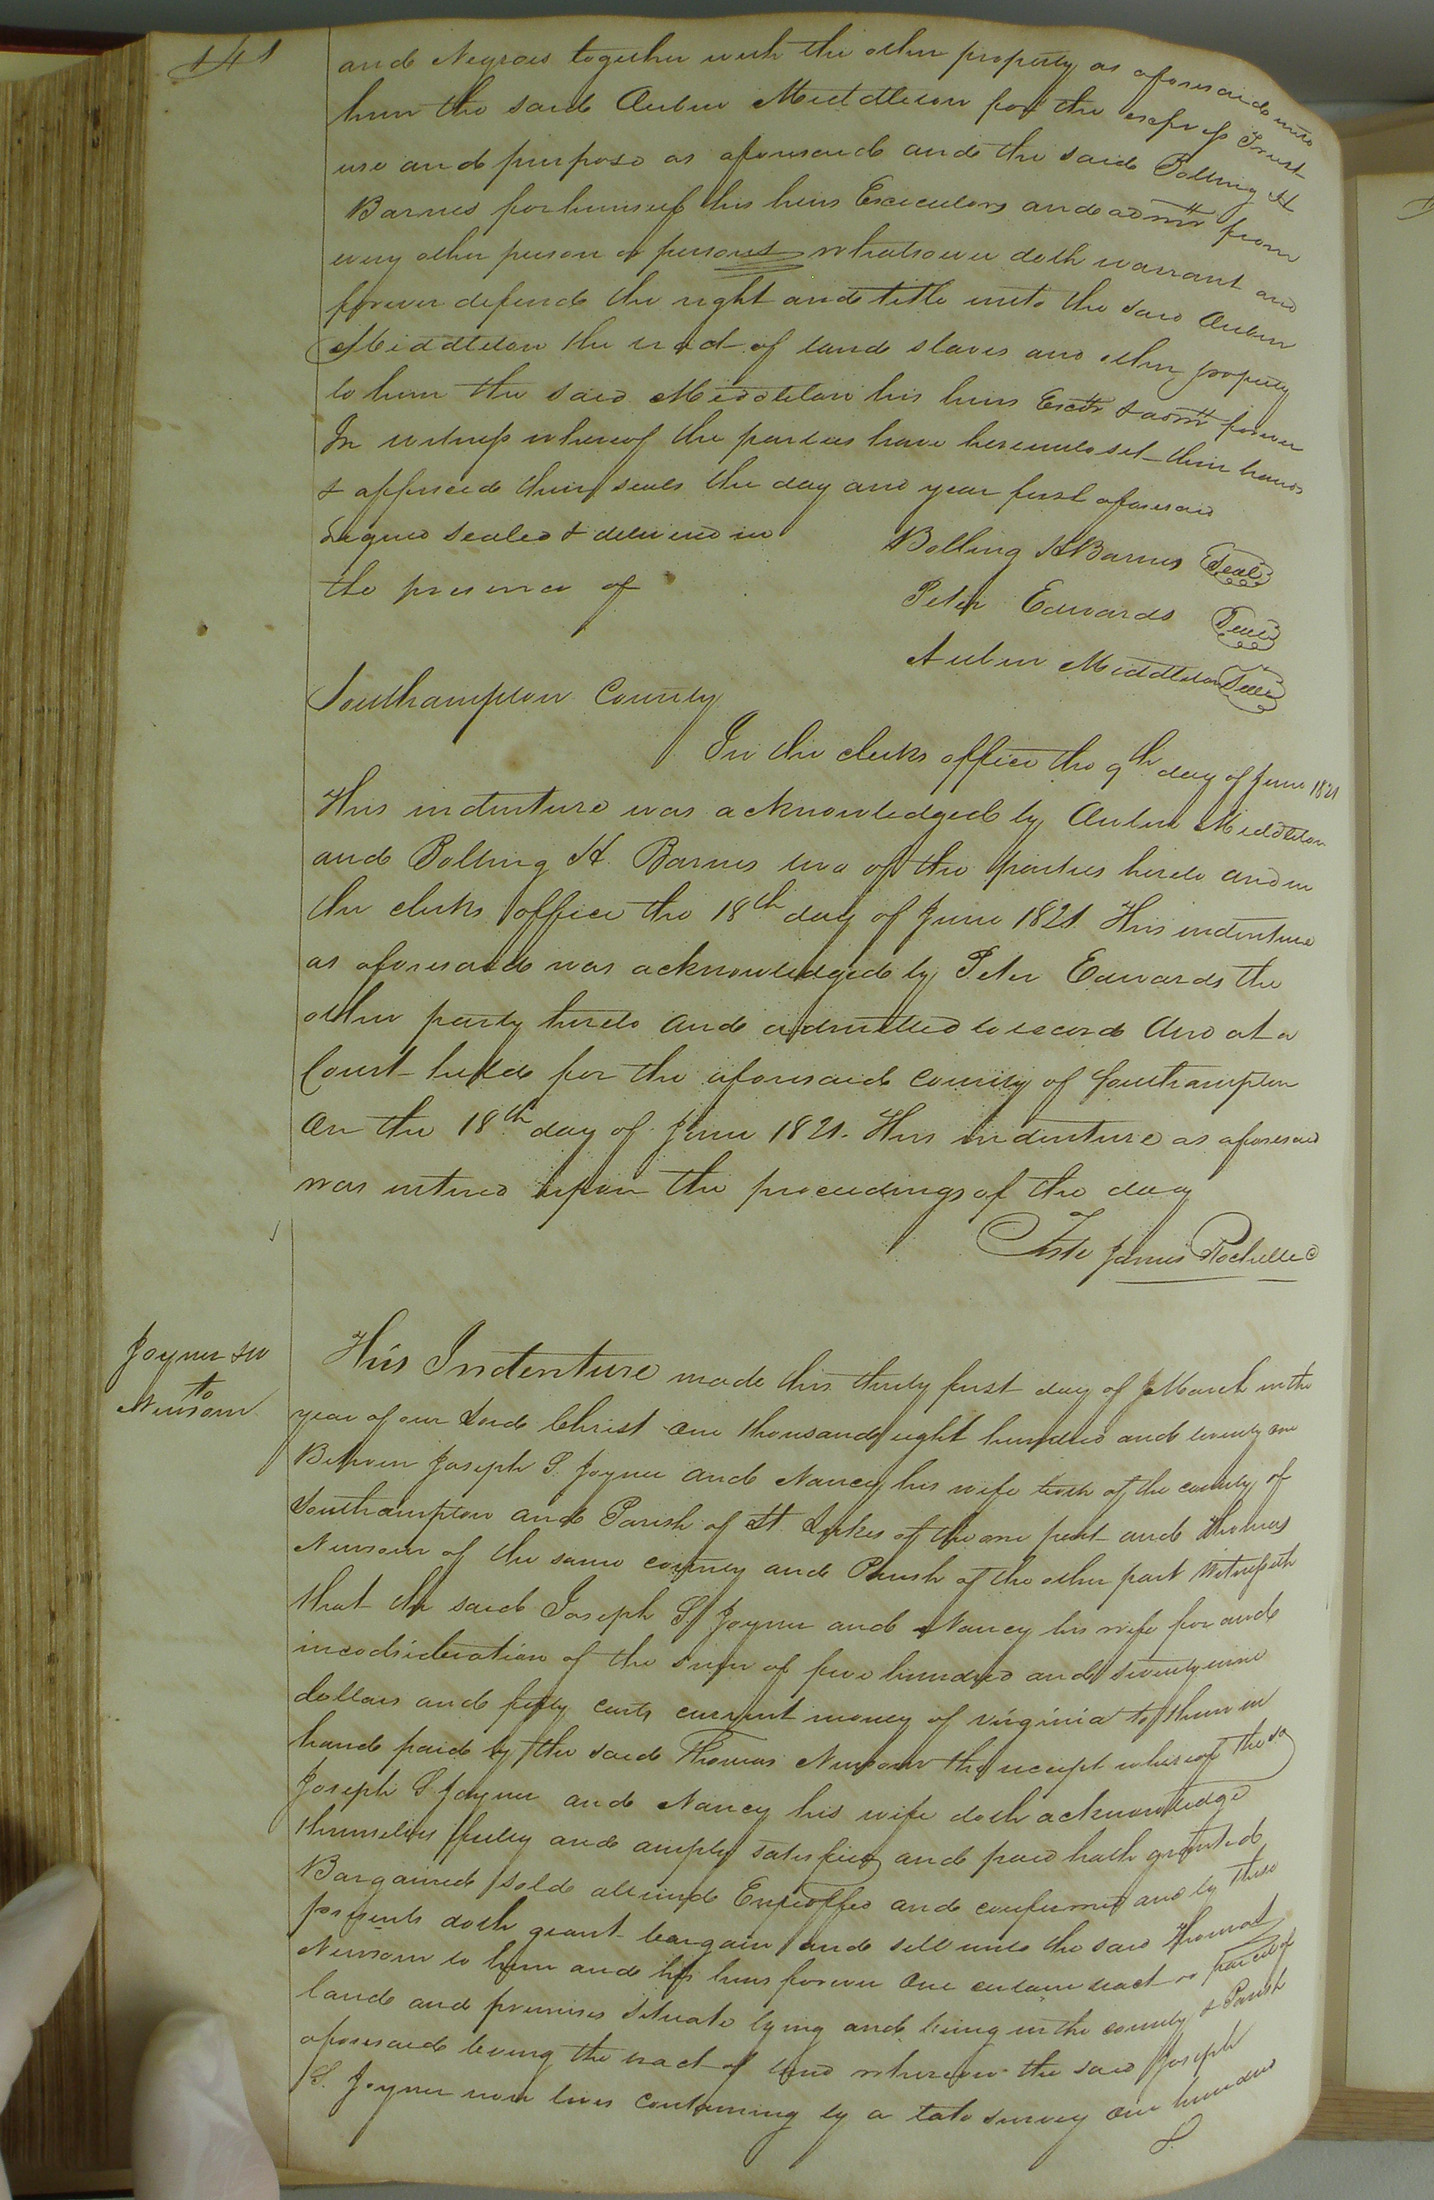 141
and Negroes together with the other property as aforesaid unto
him the said Aubin Middleton for the express Trust
use and purpose as aforesaid and the said Bolling H
Barnes for himself his heirs Executors and admrs from
every other person or persons whatsoever doth warrant and
forever defend the right and title unto the said Aubin
Middleton the tract of land slaves and other property
to him the said Middleton his heirs Exctrs & admrs forever
In witness whereof the parties have hereunto set their hands
& affixed their seals the day and year first aforesaid
Signed sealed & delivered in
the presence of
Bolling H Barnes Seal
Peter Edwards Seal
Aubin Middleton Seal
Southampton County
In the clerks office the 9th day of June 1821
This indenture was acknowledged by Aubin Middleton
and Bolling H. Barnes two of the parties hereto and in
the clerks office the 18th day of June 1821 This indenture
as aforesaid was acknowledged by Peter Edwards the
other party hereto and admitted to record And at a
Court held for the aforesaid county of Southampton
on the 18th day of June 1821. This indenture as aforesaid
was entered upon the proceedings of the day
Teste James Rochelle C
Joyner & w
to
Newsom
This Indenture made this thirty first day of March in the
year of our Lord Christ one thousand eight hundred and twenty one
Between Joseph S. Joyner and Nancy his wife both of the county of
Southampton and Parish of St. Lukes of the one part and Thomas
Newsom of the same county and Parish of the other part Witnesseth
that the said Joseph S. Joyner and Nancy his wife for and
incodsideration of the sum of five hundred and seventy nine
dollars and fifty cents current money of virginia to them in
hand paid by the said Thomas Newsom the receipt whereof the sd
Joseph S Joyner and Nancy his wife doth acknowledge
themselves fully and amply satisfied and paid hath granted
Bargained sold aliened Enfeoffed and confirmed and by these
presents doth grant bargain and sell unto the said Thomas
Newsom to him and his heirs forever One certain tract or parcel of
land and premises situate lying and being in the county & Parish
aforesaid being the tract of land whereon the said Joseph
S. Joyner now lives containing by a late survey one hundred